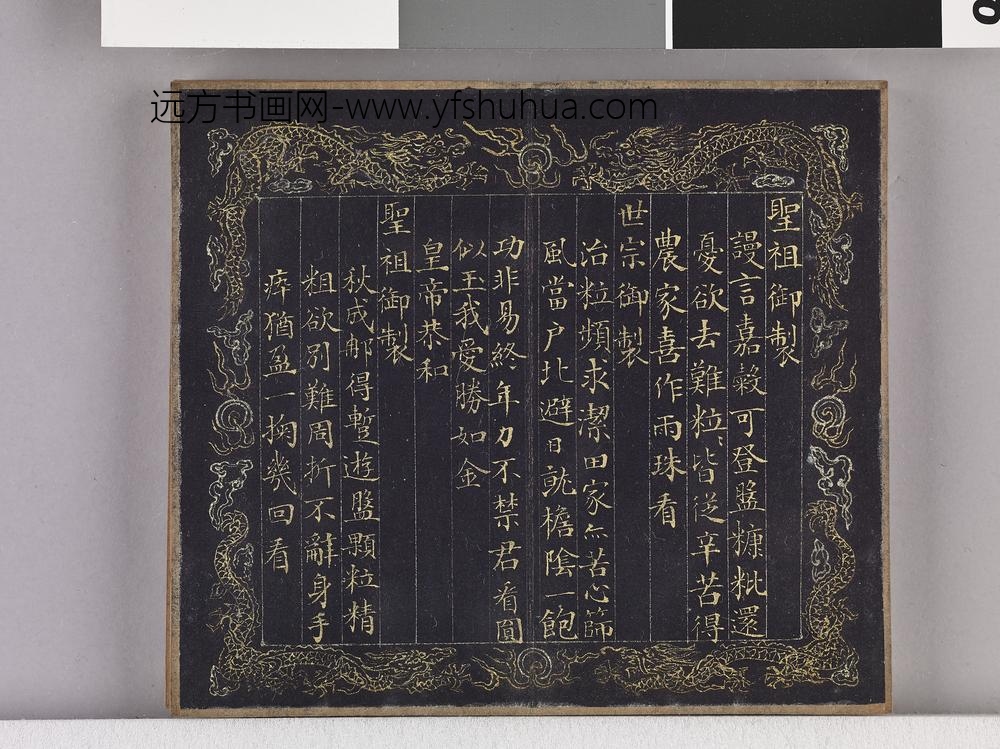 远方书画网-www.yfshuhua.com
聖祖御製
謾言嘉穀可登盤糠粃還
憂欲去難粒〻皆從辛苦得
農家喜作雨珠看
世宗御製
治粒頻求潔田家亦苦心篩
風當户北避日就檐陰一飽
功非易終年力不禁君看圓
似玉我愛勝如金
皇帝恭和
聖祖御製
秋成那得暫遊盤顆粒精
粗欲别難周折不辭身手
瘁猶盈一掬幾回看